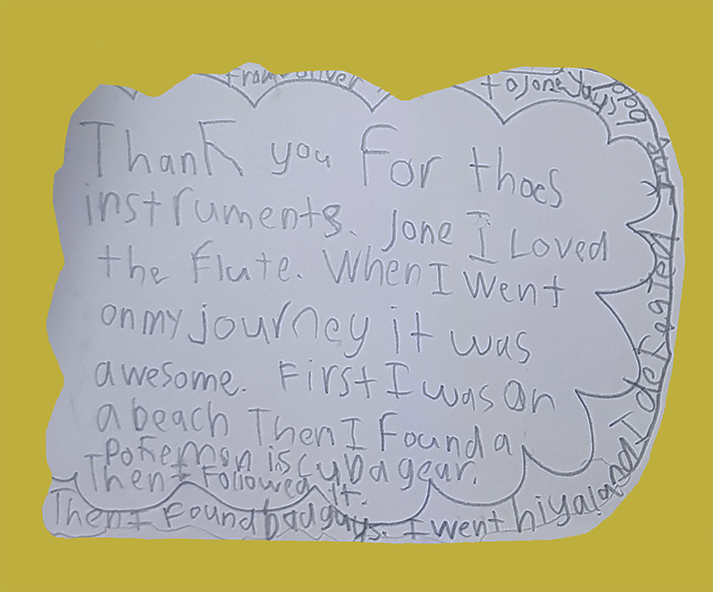 Thank you For thoes
instruments. Jone I Loved
the Flute. When I went
on my journey it was
awesome. First I was on
a beach Then I Found a
pokemon iscubagear.
Then I Followed it.
Then I Found bad guys. I went hiya! and I defeated
to Jone